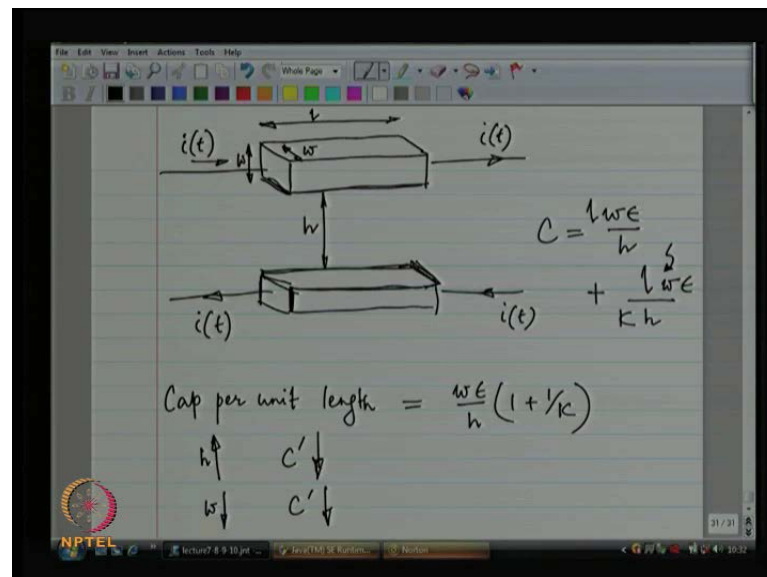 File Edit View Insert Actions Tools Help
Whole Page
B I
l
i(t) w w i(t)
h
C = lwϵ/h
+ lwϵ/Kh
i(t) i(t)
Cap per unit length = wϵ/h (1 + 1/K)
h↑ C'↓
w↓ C'↓
31 / 31
NPTEL
lecture7-8-9-10.jnt - ... Java(TM) SE Runtim... Norton 10:32